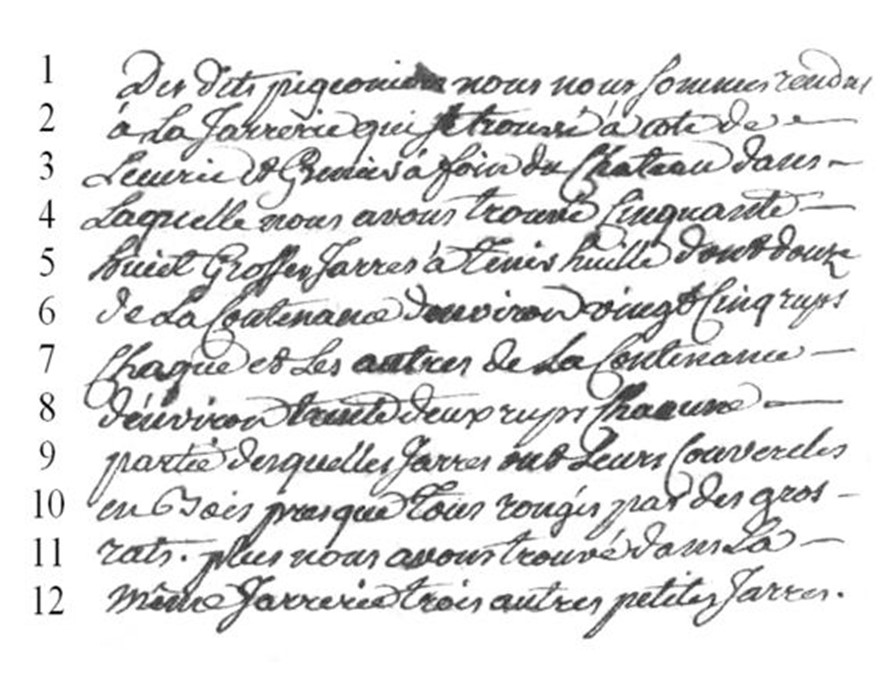 1 Des dits pigeoniers nous nous sommes rendus
2 à La Jarrerie qui se trouvé à coté de
3 Lecurie et Greniers à foin du Chateau dans
4 Laquelle nous avons trouvé Cinquante
5 huict Grosses Jarres à tenir huille dont douze
6 de La Contenance denviron vingt Cinq rups
7 Chaque et Les autres de La Contenance
8 d'énviron trente deux rups Chacune
9 partie desquelles Jarres ont Leurs Couvercles
10 en Bois presque tous rongés par des gros
11 rats. plus nous avons trouvé dans La
12 même Jarrerie trois autres petites Jarres.